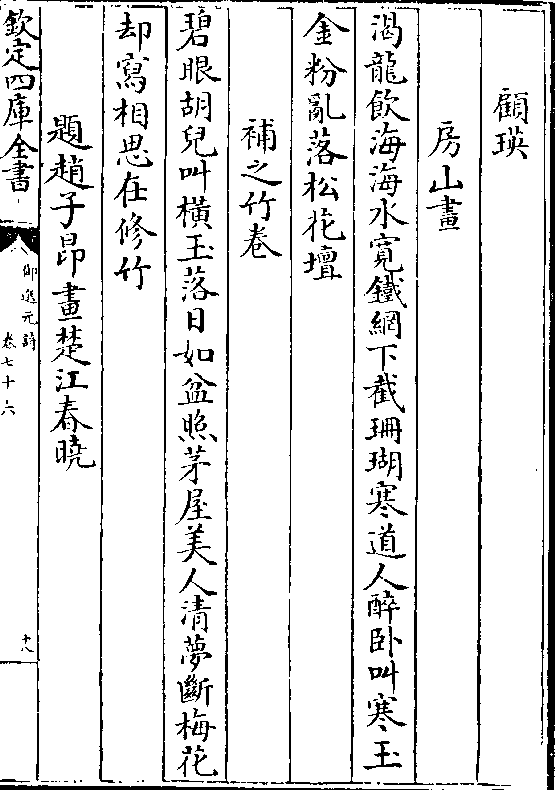 顧瑛
房山畫
渴龍飲海海水寛鐵網下截珊瑚寒道人醉卧叫寒玉
金粉亂落松花壇
補之竹卷
碧眼胡兒叫橫玉落日如盆照茅屋美人清夢斷梅花
却寫相思在修竹
題趙子昻畫楚江春曉
欽定四庫全書
御選元詩
卷七十六
十八